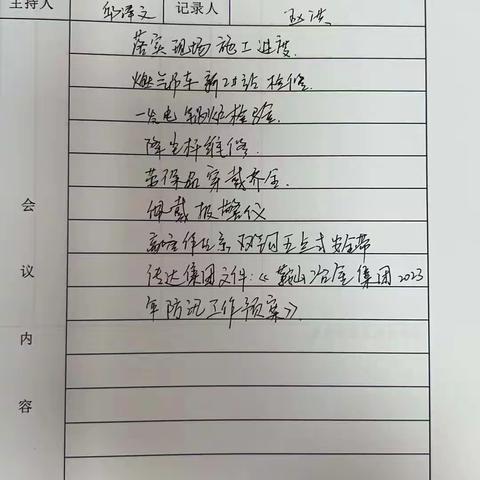 主持人 邱泽文 记录人 赵洪
落实现场施工进度.
燃气吊车新动站检修.
一发电锅炉检验.
降尘杆维修.
劳保品穿戴齐全.
佩戴报警仪
高空作业系双钩五点式安全带
传达集团文件:《鞍山冶金集团2023
年防汛工作预案》.
会
议
内
容